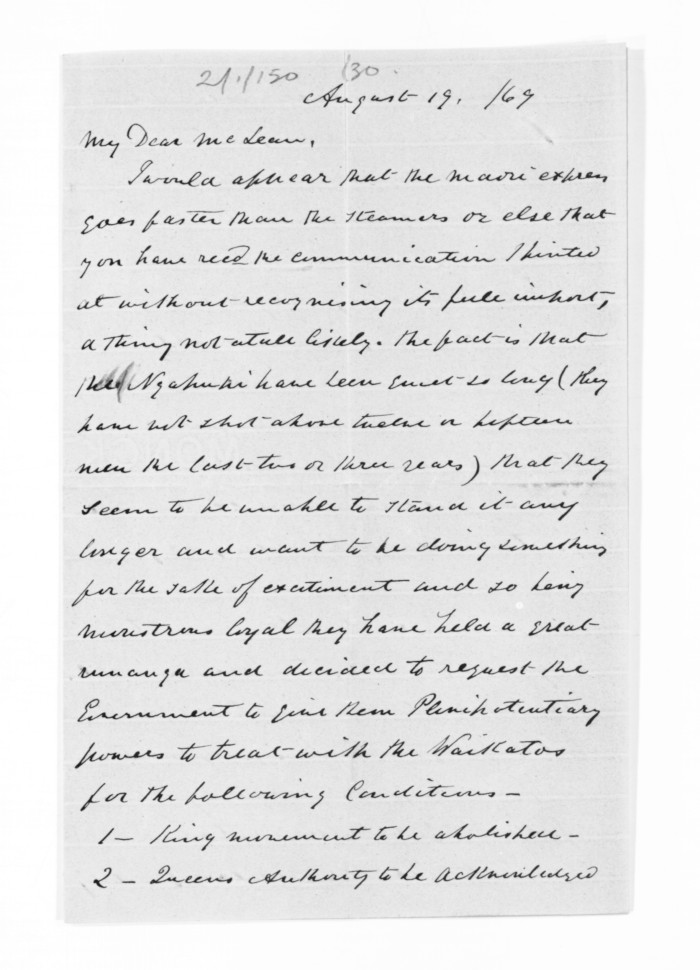 21./150 (30.
August 19. /69
My Dear McLean,
I would appear that the maori express
goes faster than the steamers or else that
you have recd the communication I hinted
at without recognising its full import,
a thing not at all likely. The fact is that
the Ngapuhi have been quiet so long (they
have not shot above twelve or fifteen
men the last two or three years) that they
seem to be unable to stand it any
longer and want to be doing something
for the sake of excitiment and so being
monstrous loyal they have held a great
runanga and decided to request the
Government to give them Plenipotentiary
powers to treat with the Waikatos
for the following Conditions —
1 — King movement to be abolished —
2 — Queens Authority to be acknowledged